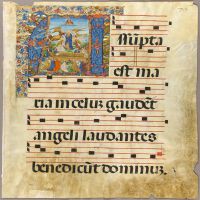 ssūpta
est ma
ria in celuz gaudēt
angeli laudantes
benedicūt dominuz.